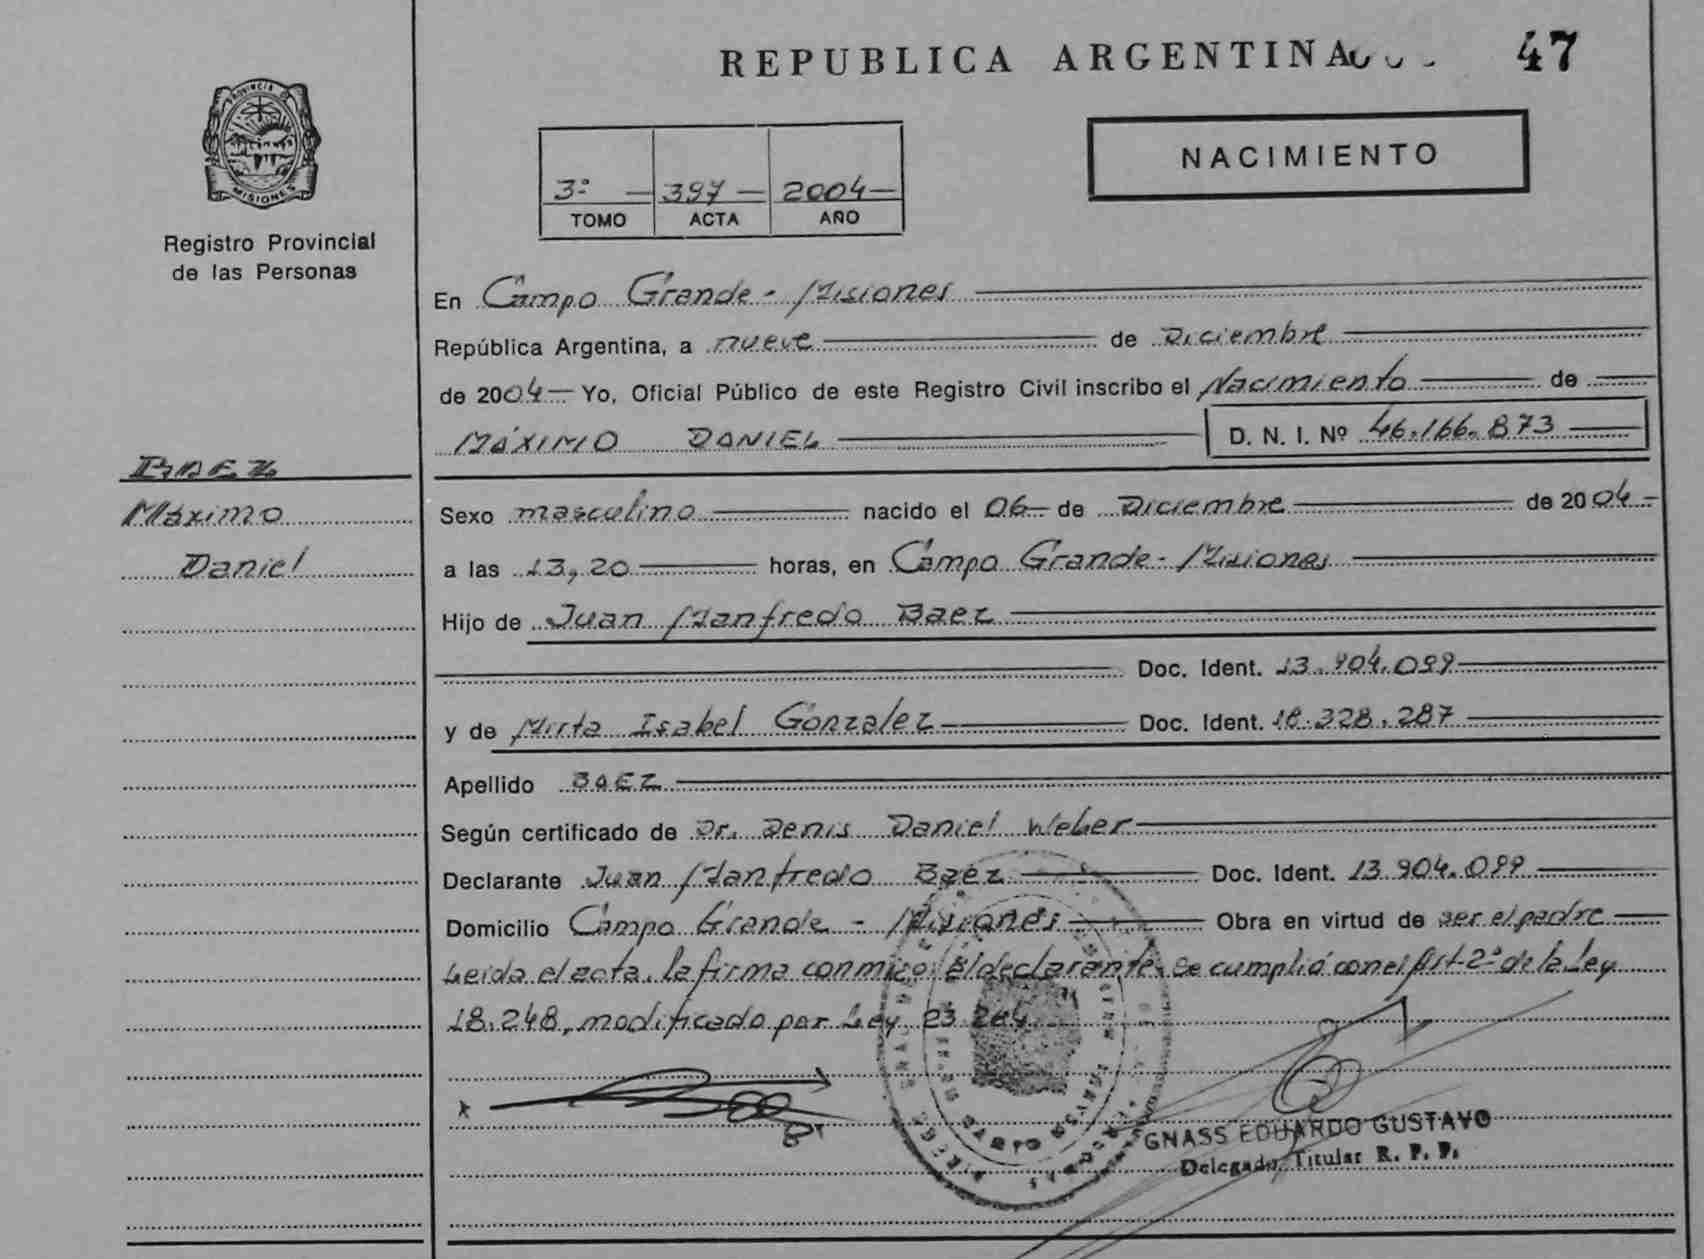 REPUBLICA ARGENTINA 47
PROVINCIA DE
MISIONES
Registro Provincial
de las Personas
NACIMIENTO
3º 397 2004
TOMO ACTA AÑO
En Campo Grande - Misiones
República Argentina, a nueve de Diciembre
de 2004 Yo, Oficial Público de este Registro Civil inscribo el Nacimiento de
MÁXIMO DANIEL D. N. I. Nº 46.166.873
BAEZ
Máximo
Daniel
Sexo masculino nacido el 06 de Diciembre de 2004
a las 13,20 horas, en Campo Grande - Misiones
Hijo de Juan Manfredo Baez
Doc. Ident. 13.904.099
y de Mirta Isabel Gonzalez Doc. Ident. 18.328.287
Apellido BAEZ
Según certificado de Dr. Denis Daniel Weber
Declarante Juan Manfredo Baez Doc. Ident. 13.904.099
Domicilio Campo Grande - Misiones Obra en virtud de ser el padre
Leida el acta, la firma conmigo el declarante. Se cumplió con el Art. 2º de la Ley
18.248, modificado por Ley 23.264
GNASS EDUARDO GUSTAVO
Delegado Titular R. P. P.